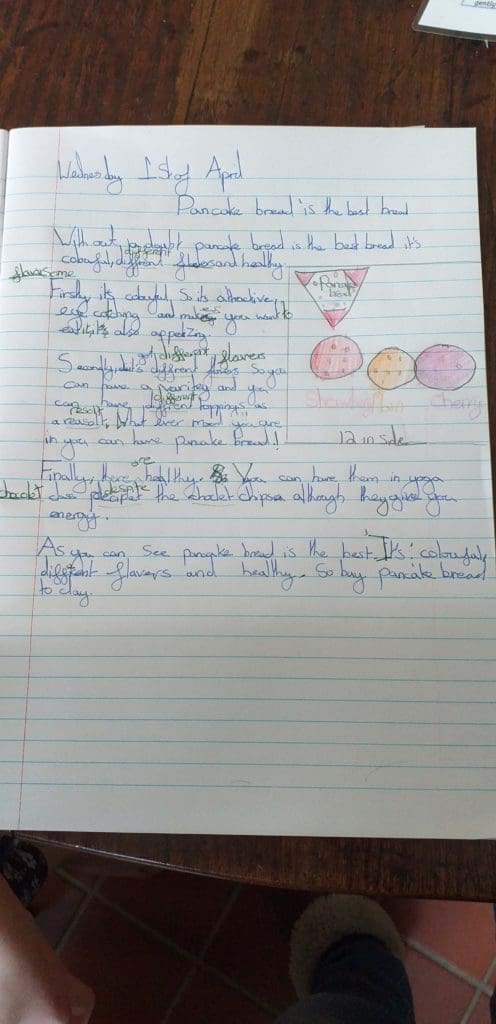 gently
Wednesday 1st of April
Pancake bread is the best bread
With out a doubt pancake bread is the best bread it's
different
colourful, different and healthy.
flavorsome
Firstly, it's colourful, So its attractive,
eye catching and makes you want to
eat it, it's also appetizing.
of different flavers
Secondly, it's different flavers So you
can have a variety and you
different
can have different toppings as
result
a reasolt, What ever mood you are
in you can have pancake bread!
Pancake
bread
Strawberry Plain Cherry
12 in side
are
Finally, there healthy. You can have them in yoga
choclet despite the choclet chips although they give you
energy.
As you can see pancake bread is the best. It's: colourful,
different flavers and healthy. So buy pancake bread
to day.